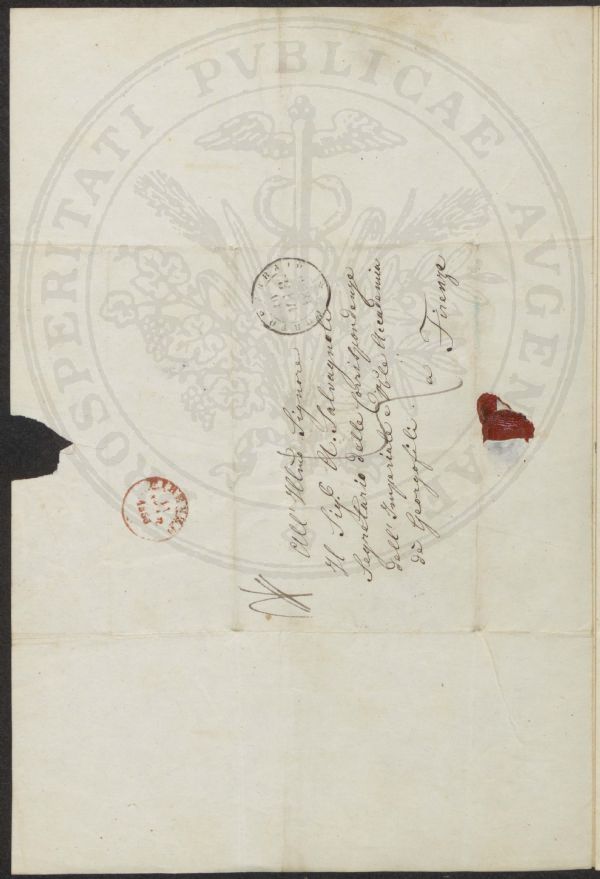 PROSPERITATI PVBLICAE AVGENDAE
All' Illmo Signore
Il Sig.e Salvagnoli
Segretario delle Corrispondenze
dell' Imperiale e Rle Accademia
de Georgofili
a Firenze
FIRENZE